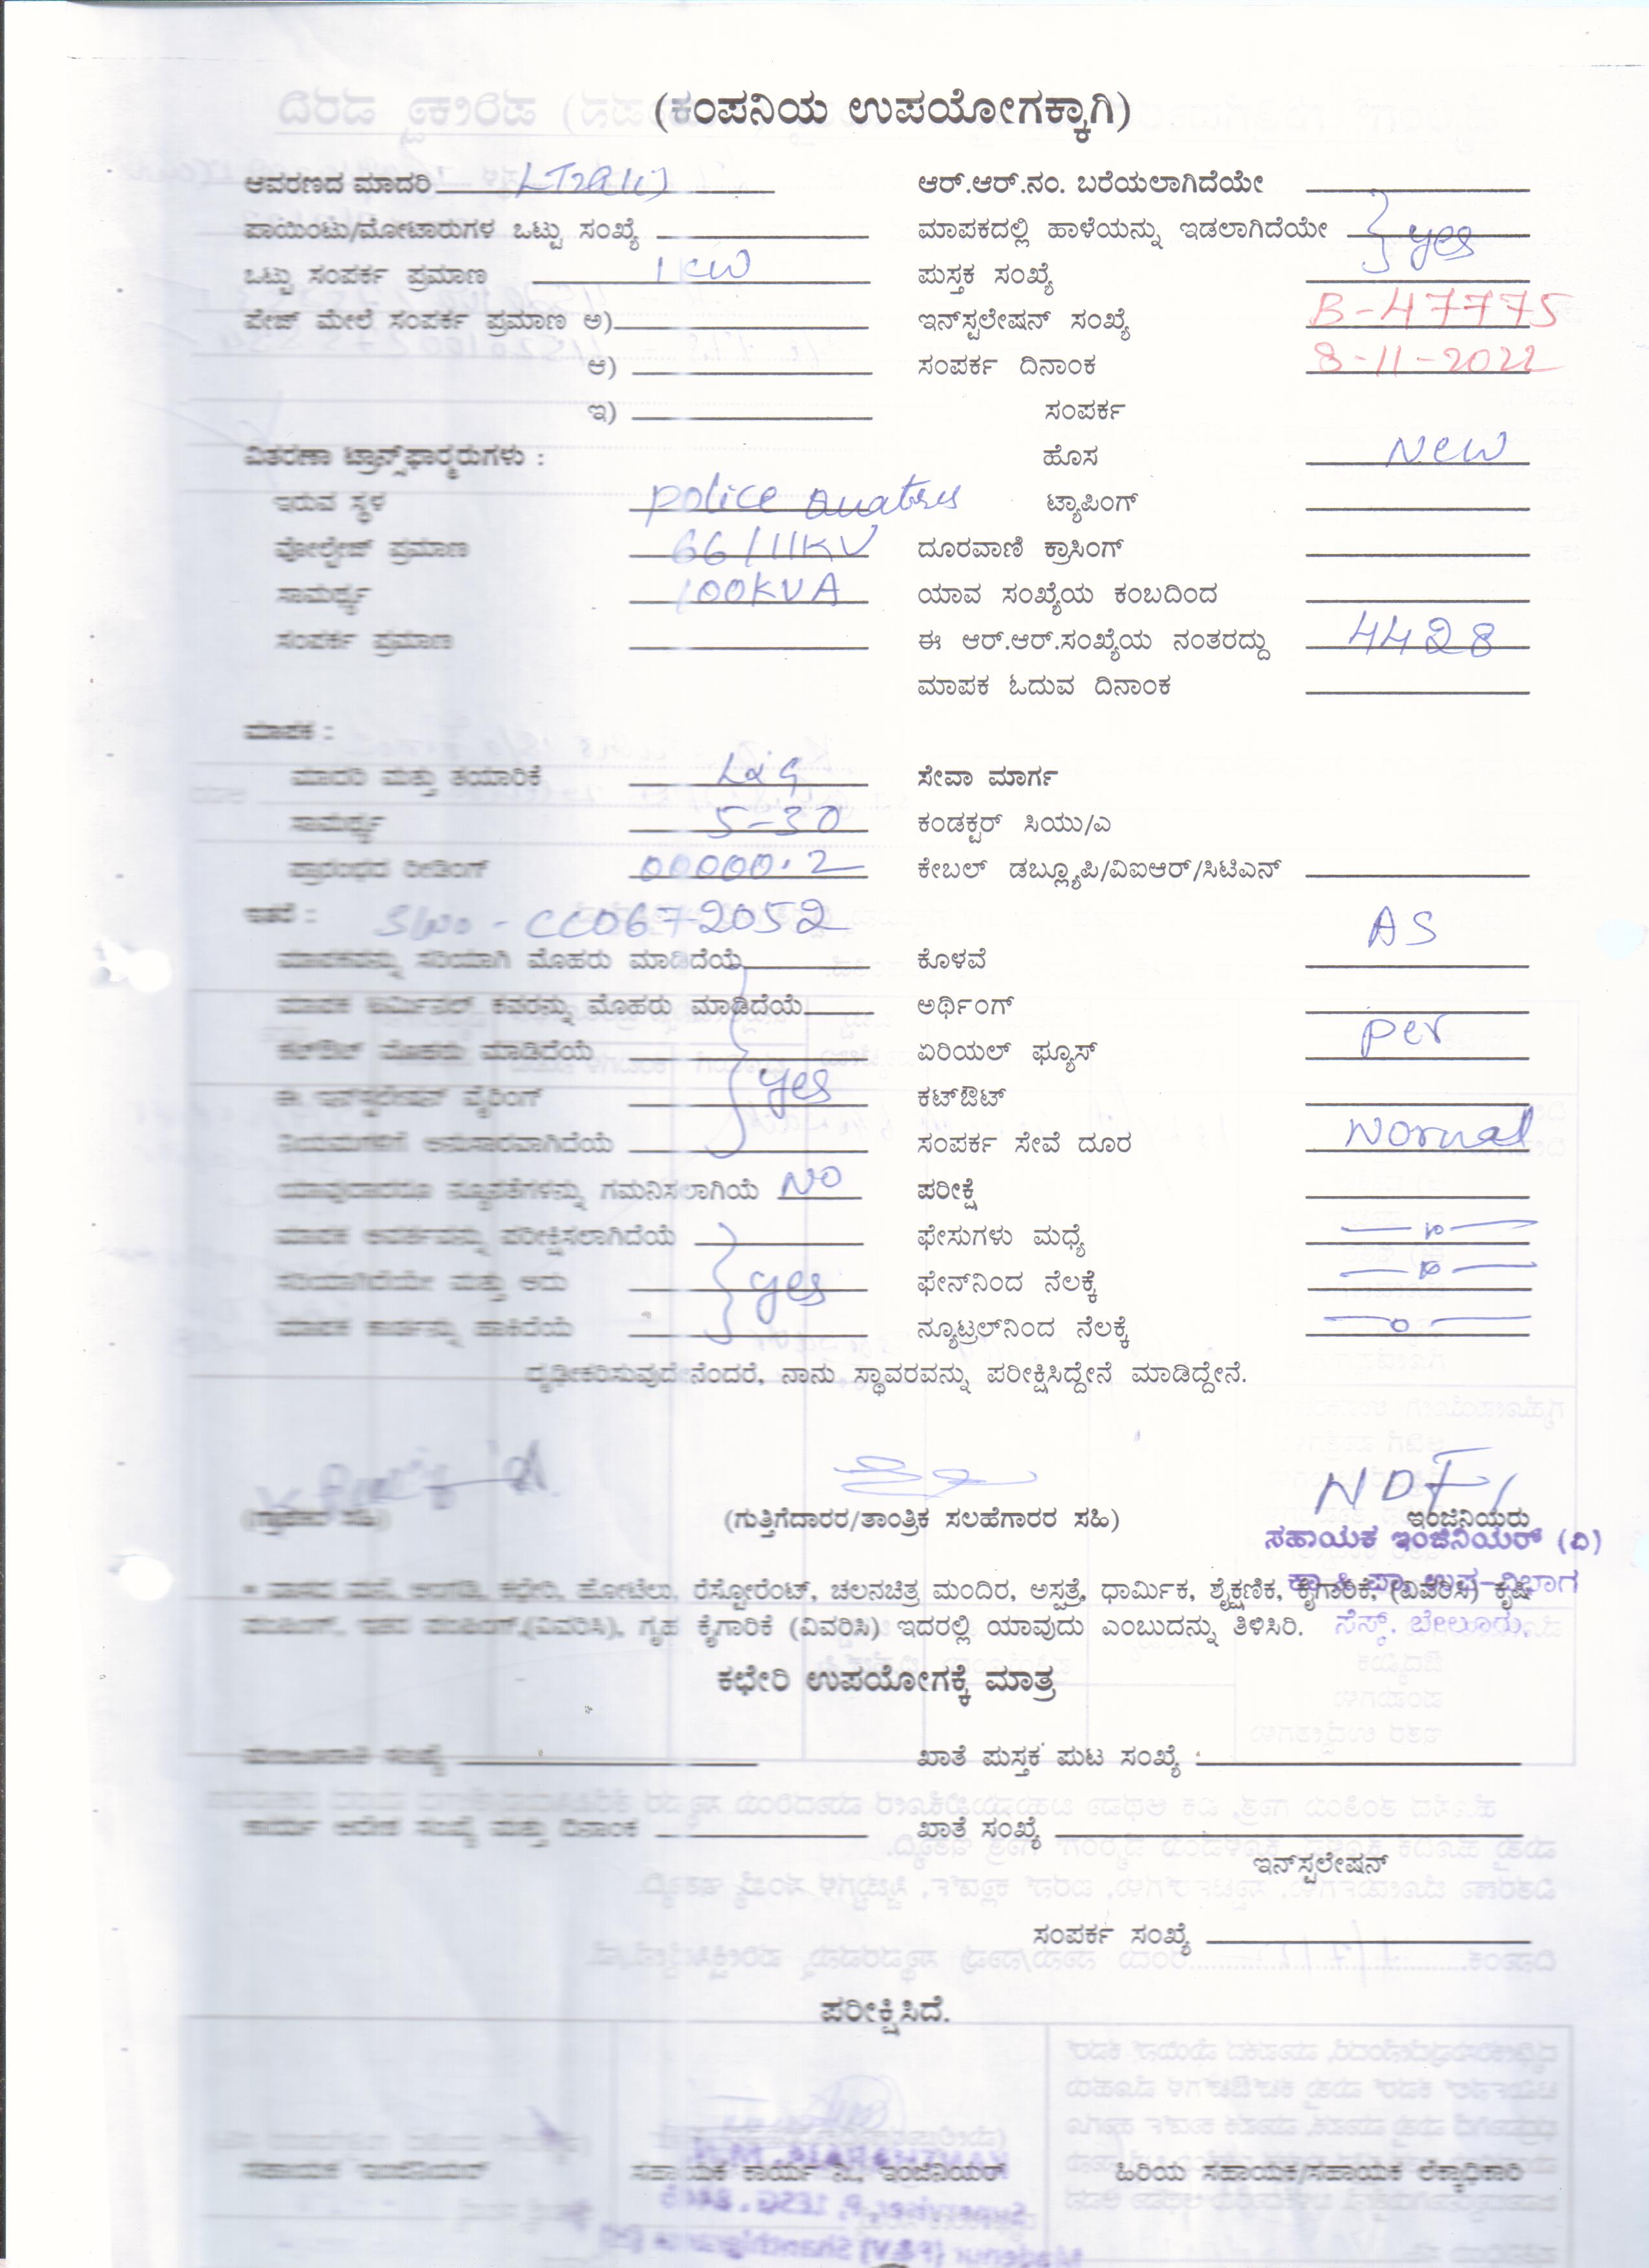 (ಕಂಪನಿಯ ಉಪಯೋಗಕ್ಕಾಗಿ)
ಆವರಣದ ಮಾದರಿ LT2a(ii) ಆರ್.ಆರ್.ನಂ. ಬರೆಯಲಾಗಿದೆಯೇ
ಪಾಯಿಂಟು/ಮೋಟಾರುಗಳ ಒಟ್ಟು ಸಂಖ್ಯೆ ಮಾಪಕದಲ್ಲಿ ಹಾಳೆಯನ್ನು ಇಡಲಾಗಿದೆಯೇ } yes
ಒಟ್ಟು ಸಂಪರ್ಕ ಪ್ರಮಾಣ 1 KW ಪುಸ್ತಕ ಸಂಖ್ಯೆ
ಪೇಜ್ ಮೇಲೆ ಸಂಪರ್ಕ ಪ್ರಮಾಣ ಅ) ಇನ್‌ಸ್ಟಲೇಷನ್ ಸಂಖ್ಯೆ B-47775
ಆ) ಸಂಪರ್ಕ ದಿನಾಂಕ 8-11-2022
ಇ) ಸಂಪರ್ಕ
ವಿತರಣಾ ಟ್ರಾನ್ಸ್‌ಫಾರ್ಮರುಗಳು : ಹೊಸ New
ಇರುವ ಸ್ಥಳ police Quatrus ಟ್ಯಾಪಿಂಗ್
ವೋಲ್ಟೇಜ್ ಪ್ರಮಾಣ 66/11KV ದೂರವಾಣಿ ಕ್ರಾಸಿಂಗ್
ಸಾಮರ್ಥ್ಯ 100KVA ಯಾವ ಸಂಖ್ಯೆಯ ಕಂಬದಿಂದ
ಸಂಪರ್ಕ ಪ್ರಮಾಣ ಈ ಆರ್.ಆರ್.ಸಂಖ್ಯೆಯ ನಂತರದ್ದು 4428
ಮಾಪಕ ಓದುವ ದಿನಾಂಕ
ಮಾಪಕ :
ಮಾದರಿ ಮತ್ತು ತಯಾರಿಕೆ L&G ಸೇವಾ ಮಾರ್ಗ
ಸಾಮರ್ಥ್ಯ 5-30 ಕಂಡಕ್ಟರ್ ಸಿಯು/ಎ
ಪ್ರಾರಂಭದ ರೀಡಿಂಗ್ 00000.2 ಕೇಬಲ್ ಡಬ್ಲ್ಯೂಪಿ/ವಿಐಆರ್/ಸಿಟಿಎನ್
ಇತರೆ : Slno - CC0672052 AS
ಮಾಪಕವನ್ನು ಸರಿಯಾಗಿ ಮೊಹರು ಮಾಡಿದೆಯೆ ಕೊಳವೆ
ಮಾಪಕ ಟರ್ಮಿನಲ್ ಕವರನ್ನು ಮೊಹರು ಮಾಡಿದೆಯೆ ಅರ್ಥಿಂಗ್
ಕಟ್‌ಔಟ್ ಮೊಹರು ಮಾಡಿದೆಯೆ ಏರಿಯಲ್ ಫ್ಯೂಸ್ per
ಈ ಇನ್‌ಸ್ಟಲೇಷನ್ ವೈರಿಂಗ್ } yes ಕಟ್‌ಔಟ್
ನಿಯಮಗಳಿಗೆ ಅನುಸಾರವಾಗಿದೆಯೆ ಸಂಪರ್ಕ ಸೇವೆ ದೂರ Normal
ಯಾವುದಾದರೂ ನ್ಯೂನತೆಗಳನ್ನು ಗಮನಿಸಲಾಗಿಯೆ NO ಪರೀಕ್ಷೆ
ಮಾಪಕ ಆವರ್ತವನ್ನು ಪರೀಕ್ಷಿಸಲಾಗಿದೆಯೆ ಫೇಸುಗಳು ಮಧ್ಯೆ
ಸರಿಯಾಗಿದೆಯೇ ಮತ್ತು ಅದು } yes ಫೇನ್‌ನಿಂದ ನೆಲಕ್ಕೆ
ಮಾಪಕ ಕಾರ್ಡನ್ನು ಹಾಕಿದೆಯೆ ನ್ಯೂಟ್ರಲ್‌ನಿಂದ ನೆಲಕ್ಕೆ
ದೃಢೀಕರಿಸುವುದೇನೆಂದರೆ, ನಾನು ಸ್ಥಾವರವನ್ನು ಪರೀಕ್ಷಿಸಿದ್ದೇನೆ ಮಾಡಿದ್ದೇನೆ.
(ಗ್ರಾಹಕರ ಸಹಿ) (ಗುತ್ತಿಗೆದಾರರ/ತಾಂತ್ರಿಕ ಸಲಹೆಗಾರರ ಸಹಿ) ಇಂಜಿನಿಯರು
ಸಹಾಯಕ ಇಂಜಿನಿಯರ್ (ವಿ)
* ವಾಸದ ಮನೆ, ಅಂಗಡಿ, ಕಛೇರಿ, ಹೋಟೆಲು, ರೆಸ್ಟೋರೆಂಟ್, ಚಲನಚಿತ್ರ ಮಂದಿರ, ಅಸ್ಪತ್ರೆ, ಧಾರ್ಮಿಕ, ಶೈಕ್ಷಣಿಕ, ಕೈಗಾರಿಕೆ, (ವಿವರಿಸಿ) ಕೃಷಿ
ಪಂಪಿಂಗ್, ಇತರ ಪಂಪಿಂಗ್,(ವಿವರಿಸಿ), ಗೃಹ ಕೈಗಾರಿಕೆ (ವಿವರಿಸಿ) ಇದರಲ್ಲಿ ಯಾವುದು ಎಂಬುದನ್ನು ತಿಳಿಸಿರಿ. ಸೆಸ್ಕ್, ಬೇಲೂರು.
ಕಛೇರಿ ಉಪಯೋಗಕ್ಕೆ ಮಾತ್ರ
ಮಂಜೂರಾತಿ ಸಂಖ್ಯೆ ಖಾತೆ ಪುಸ್ತಕ ಪುಟ ಸಂಖ್ಯೆ
ಕಾರ್ಯ ಆದೇಶ ಸಂಖ್ಯೆ ಮತ್ತು ದಿನಾಂಕ ಖಾತೆ ಸಂಖ್ಯೆ
ಇನ್‌ಸ್ಟಲೇಷನ್
ಸಂಪರ್ಕ ಸಂಖ್ಯೆ
ಪರೀಕ್ಷಿಸಿದೆ.
ಸಹಾಯಕ ಇಂಜಿನಿಯರ್ ಸಹಾಯಕ ಕಾರ್ಯ ನಿ., ಇಂಜಿನಿಯರ್ ಹಿರಿಯ ಸಹಾಯಕ/ಸಹಾಯಕ ಲೆಕ್ಕಾಧಿಕಾರಿ